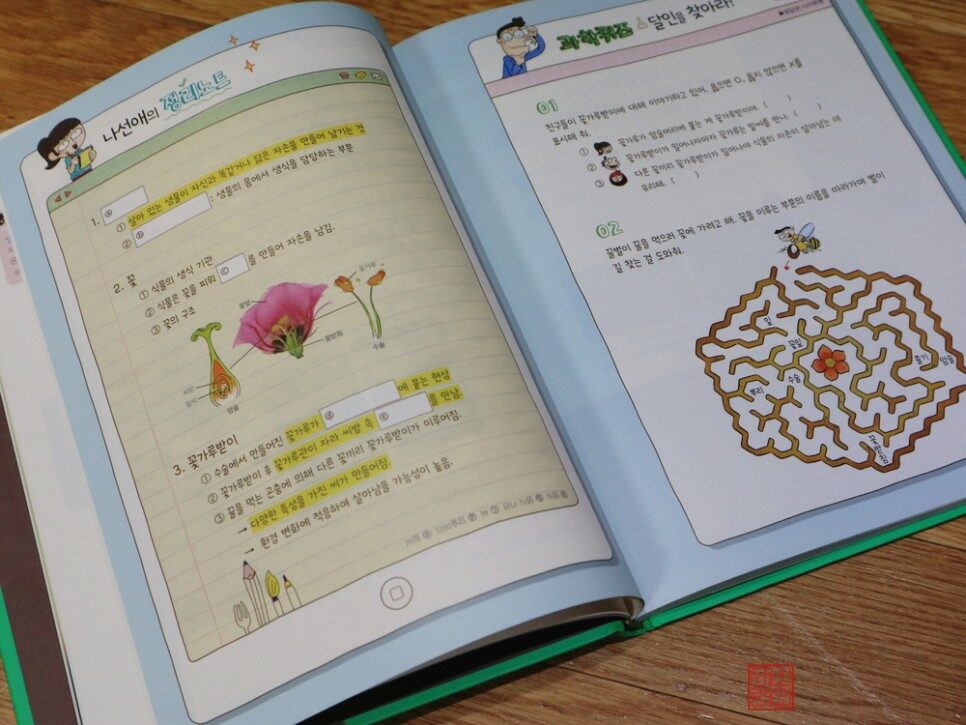 나선애의 정리노트
1. ⓐ
① 살아 있는 생물이 자신과 똑같거나 닮은 자손을 만들어 남기는 것
② ⓑ : 생물의 몸에서 생식을 담당하는 부분
2. 꽃
① 식물의 생식 기관
② 식물은 꽃을 피워 ⓒ 를 만들어 자손을 남김.
③ 꽃의 구조
꽃잎
꽃가루
꽃받침
수술
씨방
밑씨
암술
3. 꽃가루받이
① 수술에서 만들어진 꽃가루가 ⓓ 에 붙는 현상
② 꽃가루받이 후 꽃가루관이 자라 씨방 속 ⓔ 를 만남.
③ 꿀을 먹는 곤충에 의해 다른 꽃끼리 꽃가루받이가 이루어짐.
→ 다양한 특성을 가진 씨가 만들어짐.
→ 환경 변화에 적응하여 살아남을 가능성이 높음.
ⓐ 생식 ⓑ 생식 기관 ⓒ 씨 ⓓ 암술머리 ⓔ 밑씨
과학퀴즈 달인을 찾아라!
01
친구들이 꽃가루받이에 대해 이야기하고 있어. 옳으면 O, 옳지 않으면 X를
표시해 줘.
① 꽃가루가 암술머리에 붙는 게 꽃가루받이야. ( )
② 꽃가루받이가 일어나자마자 꽃가루는 밑씨를 만나. ( )
③ 다른 꽃끼리 꽃가루받이가 일어나야 식물의 자손이 살아남는 데
유리해. ( )
02
꿀벌이 꿀을 먹으러 꽃에 가려고 해. 꽃을 이루는 부분의 이름을 따라가며 벌이
길 찾는 걸 도와줘.
잎
꽃잎
줄기
암술
뿌리
수술